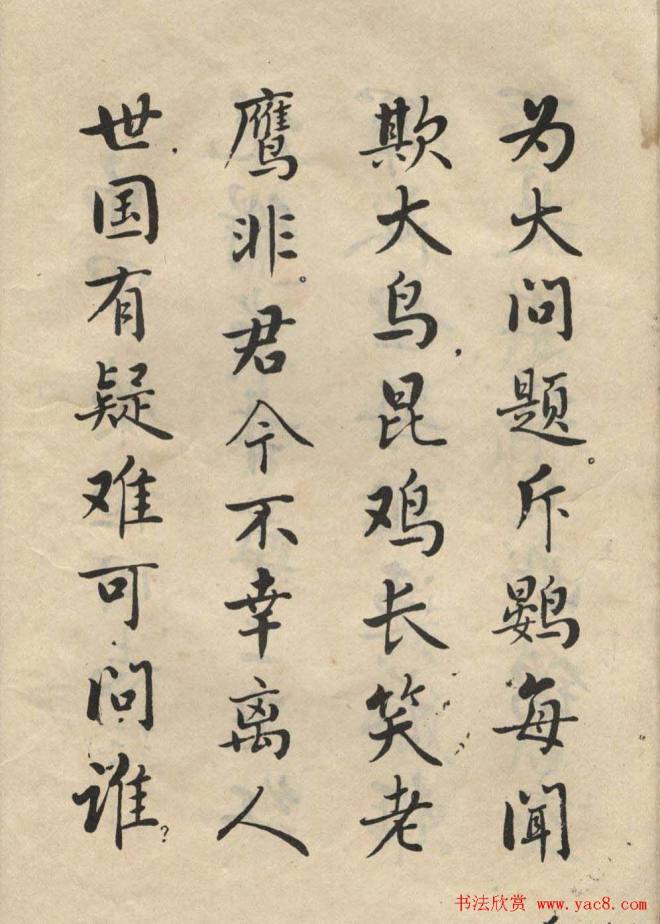 为大问题。斥鷃每闻
欺大鸟，昆鸡长笑老
鹰非。君今不幸离人
世，国有疑难可问谁？
书法欣赏 www.yac8.com